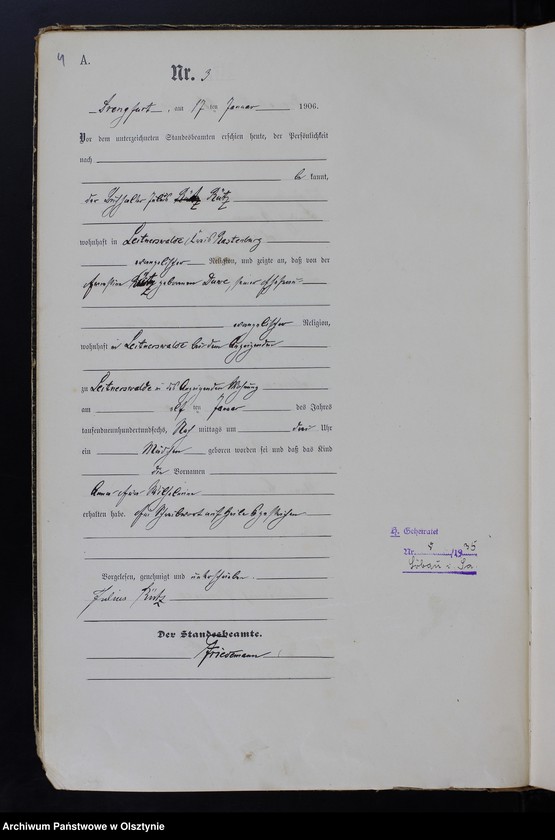 A.
Nr. 3
Drengfurt, am 17ten Januar 1906.
Vor dem unterzeichneten Standesbeamten erschien heute, der Persönlichkeit
nach
be kannt,
der Julius Kutz
wohnhaft in Leitnerswalde Kreis Rastenburg
evangelischer Religion, und zeigte an, daß von der
geborenen Dawe, seiner Ehefrau
evangelischer Religion,
wohnhaft in Leitnerswalde bei dem Anzeigenden
zu Leitnerswalde in des Anzeigenden Wohnung
am elf ten Januar des Jahres
tausendneunhundertundsechs, Nach mittags um drei Uhr
ein Mädchen geboren worden sei und daß das Kind
die Vornamen
Anna Wilhelmine
erhalten habe.
Vorgelesen, genehmigt und unterschrieben.
Julius Kutz
Der Standesbeamte.
Friedemann
H. Geheiratet
Nr. 8 /1935
Löbau i. Sa.
Archiwum Państwowe w Olsztynie